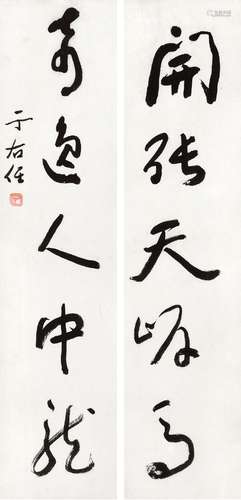 開張天岸馬
奇逸人中龍
于右任